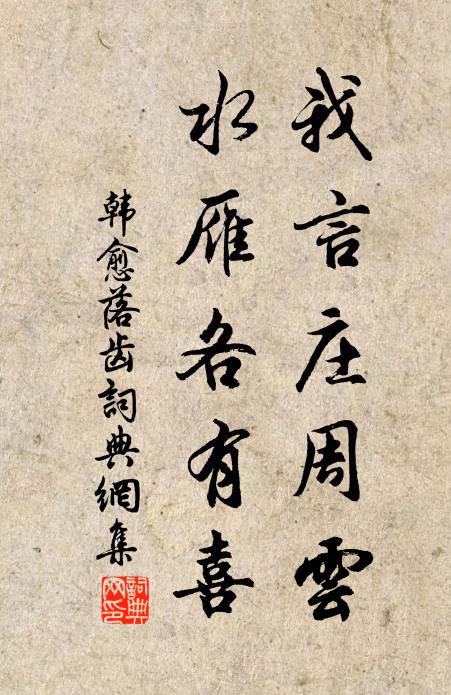 我言庄周雲
水雁各有喜
韩愈落齿詞典網集
詞典网印